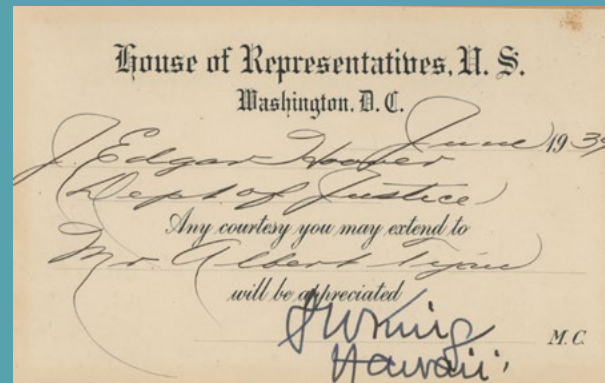 House of Representatives, U. S.
Washington, D. C.
June 1939
J. Edgar Hoover
(Dept of Justice)
Any courtesy you may extend to
Mr Albert
will be appreciated
King M. C.
Hawaii.